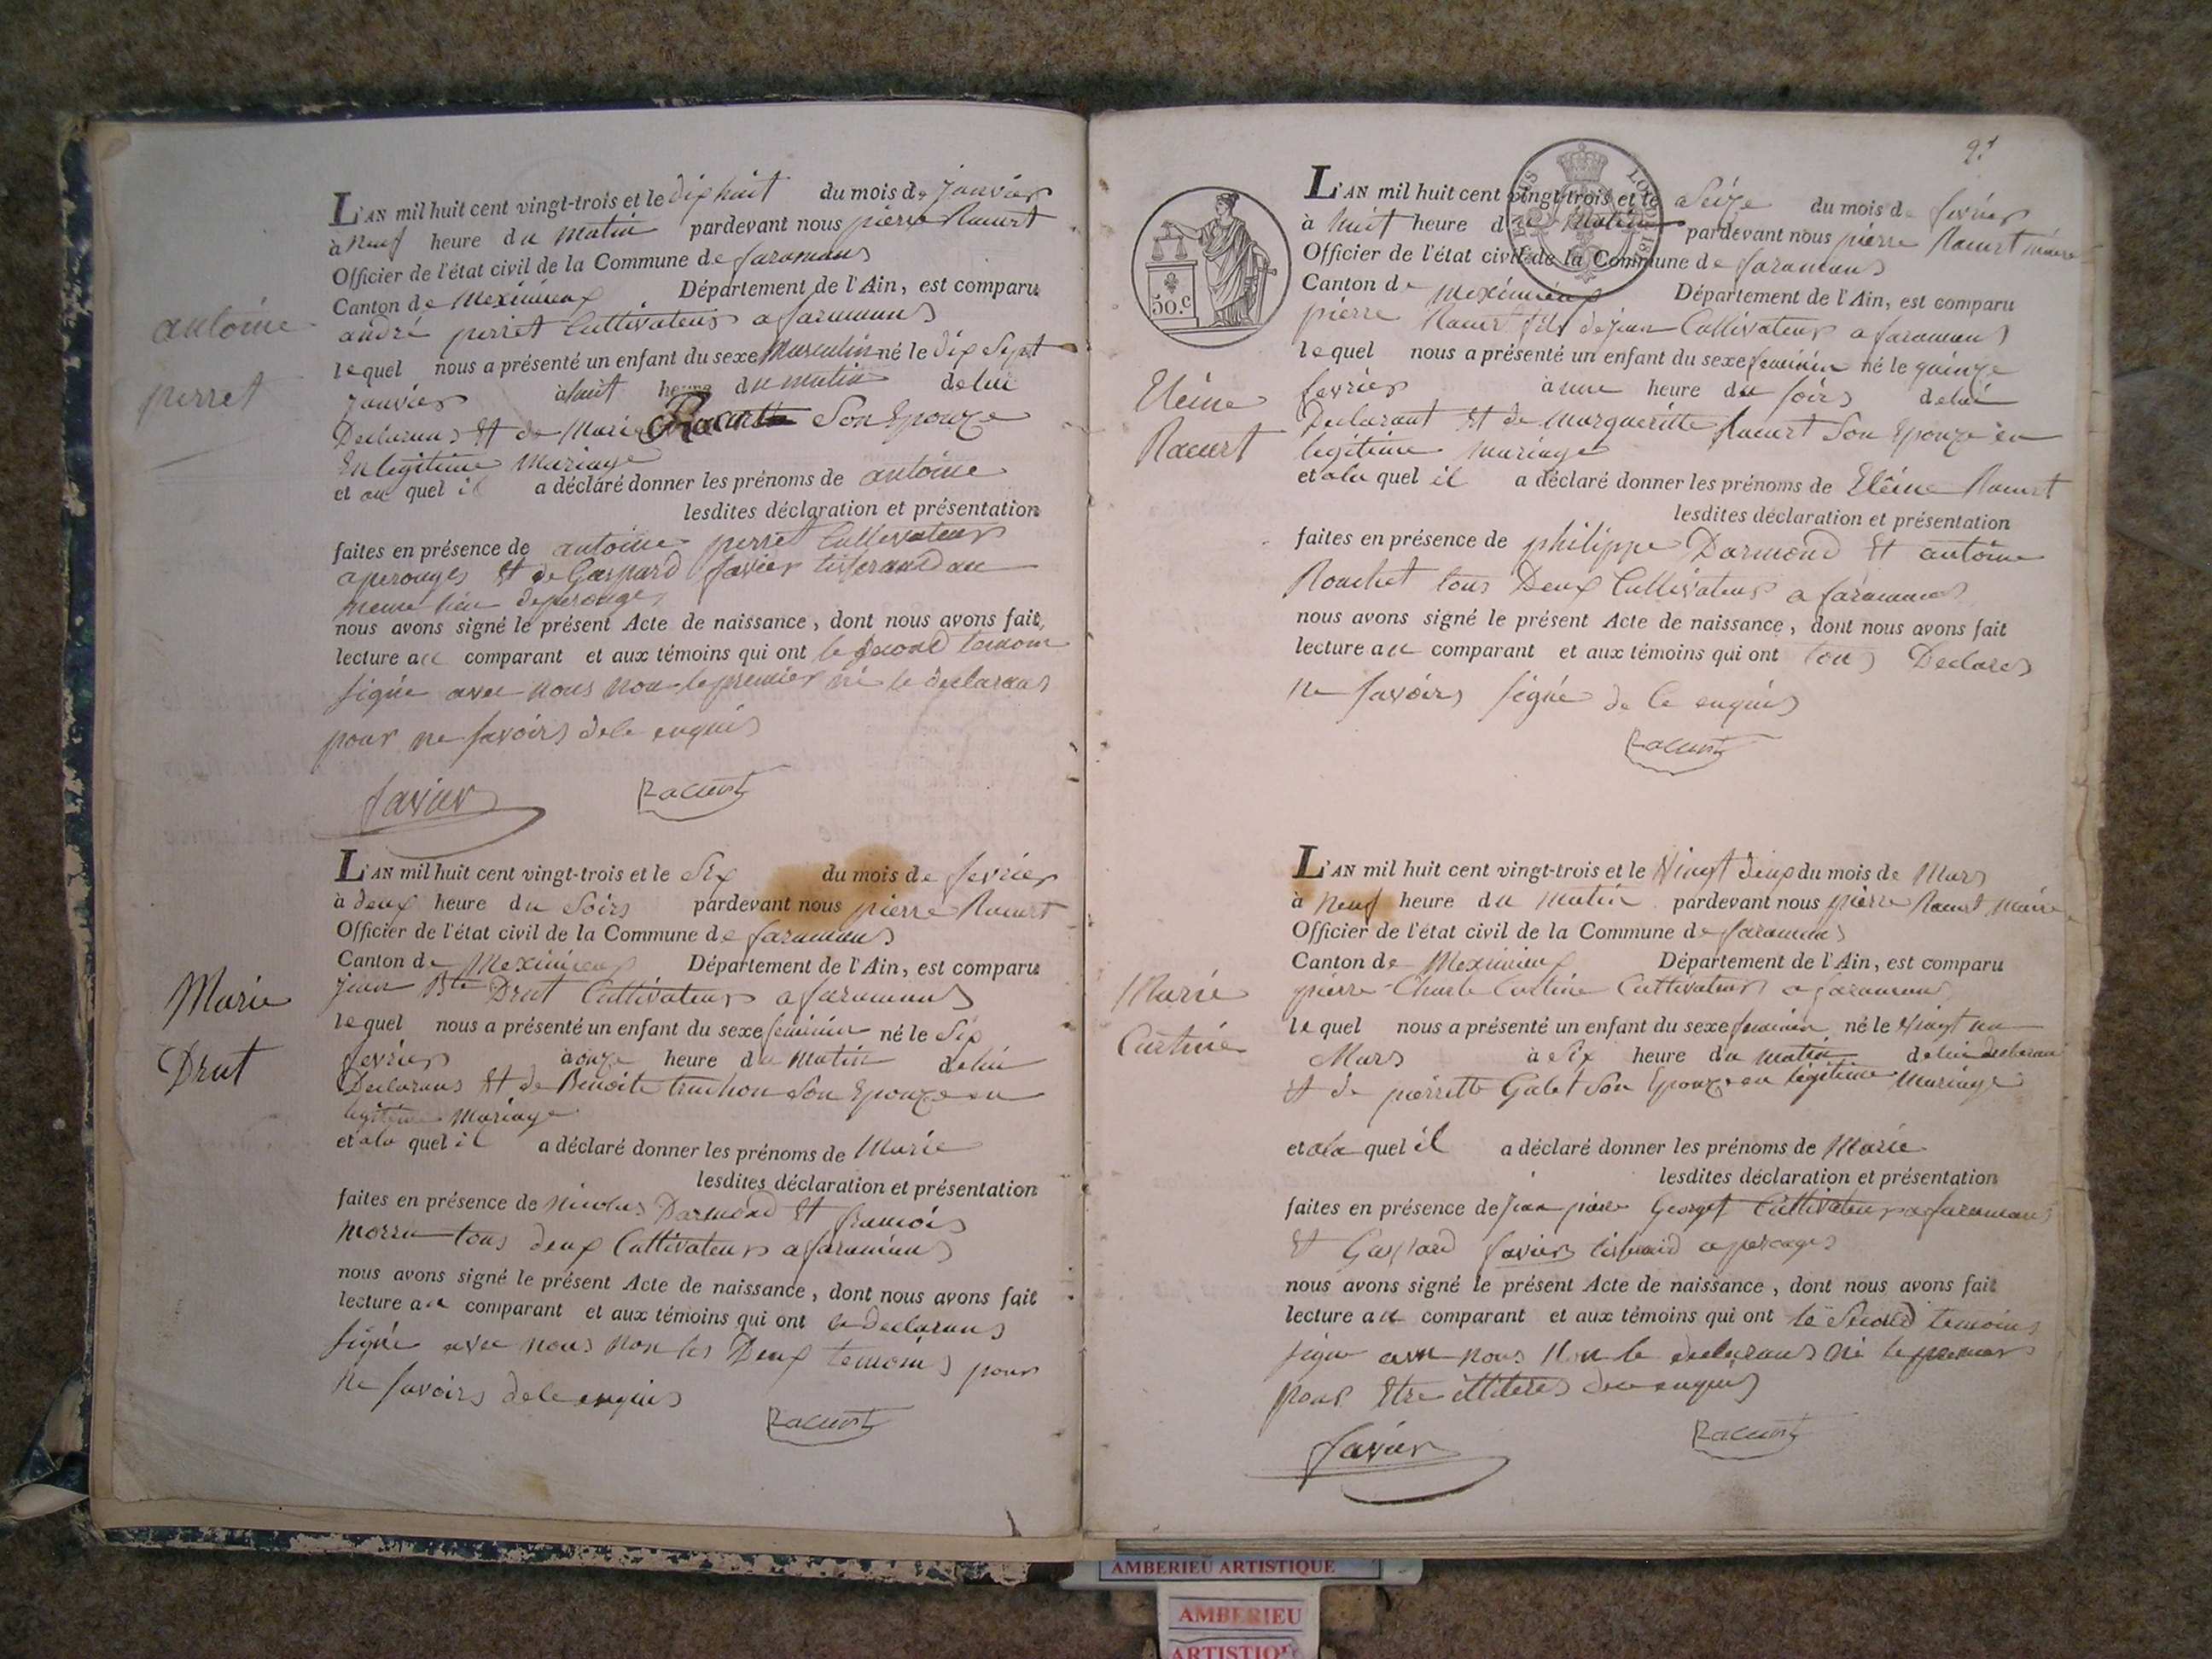 antoine
perret
L'AN mil huit cent vingt-trois et le dix huit du mois de janvier
à neuf heure du matin pardevant nous pierre Racurt
Officier de l'état civil de la Commune de faramans
Canton de Meximieux Département de l'Ain, est comparu
andré perret Cultivateur a faramans
lequel nous a présenté un enfant du sexe Masculin né le dix Sept
janvier à huit heure du matin de lui
Declarans Et de Marie Son Epouze
En legitime Mariage
et au quel il a déclaré donner les prénoms de antoine
lesdites déclaration et présentation
faites en présence de antoine perret Cultivateur
a perouges Et de Gaspard favier tisserand au
meme lieu de perouges
nous avons signé le présent Acte de naissance, dont nous avons fait
lecture au comparant et aux témoins qui ont le Second temoin
signé avec nous non le premier ni le declarans
pour ne savoirs de le enquis
favier Racurt
Marie
Drut
L'AN mil huit cent vingt-trois et le Six du mois de fevrier
à deux heure du Soirs pardevant nous pierre Racurt
Officier de l'état civil de la Commune de faramans
Canton de Meximieux Département de l'Ain, est comparu
jean Bte Drut Cultivateur a faramans
lequel nous a présenté un enfant du sexe feminin né le Six
fevrier à onze heure du Matin de lui
Declarans Et de Benoite truchon Son Epouze en
legitime Mariage
et a la quel il a déclaré donner les prénoms de Marie
lesdites déclaration et présentation
faites en présence de Nicolas Darmond Et francois
tous deux Cultivateurs a faramans
nous avons signé le présent Acte de naissance, dont nous avons fait
lecture au comparant et aux témoins qui ont le declarans
signé avec nous non les Deux temoins pour
ne savoirs de le enquis
Racurt
2.e
50.c
Eléine
Racurt
L'AN mil huit cent vingt-trois et le Seize du mois de fevrier
à huit heure du matin pardevant nous pierre Racurt maire
Officier de l'état civil de la Commune de faramans
Canton de Meximieux Département de l'Ain, est comparu
pierre Racurt fils de jean Cultivateur a faramans
lequel nous a présenté un enfant du sexe feminin né le quinze
fevrier à une heure du soirs de lui
Declarant Et de Margueritte Racurt Son Epouze en
legitime mariage
et a la quel il a déclaré donner les prénoms de Eléine Racurt
lesdites déclaration et présentation
faites en présence de philippe Darmond Et antoine
Rouchet tous Deux Cultivateurs a faramans
nous avons signé le présent Acte de naissance, dont nous avons fait
lecture au comparant et aux témoins qui ont tous Declares
ne savoirs signé de le enquis
Racurt
Marie
Curtine
L'AN mil huit cent vingt-trois et le Vingt deux du mois de Mars
à Neuf heure du Matin pardevant nous pierre Racurt maire
Officier de l'état civil de la Commune de faramans
Canton de Meximieux Département de l'Ain, est comparu
pierre Charle Curtine Cultivateur a faramans
lequel nous a présenté un enfant du sexe feminin né le Vingt un
Mars à Six heure du matin de lui declarans
Et de pierrette Galet Son Epouze en legitime Mariage
et a la quel il a déclaré donner les prénoms de Marie
lesdites déclaration et présentation
faites en présence de jean piere Georget Cultivateur a faramans
Et Gaspard favier tisserand a perouges
nous avons signé le présent Acte de naissance, dont nous avons fait
lecture au comparant et aux témoins qui ont le Second temoins
signé avec nous Non le declarans ni le premier
pour Etre illiteres de le enquis
favier Racurt
AMBERIEU ARTISTIQUE
AMBERIEU
ARTISTIQUE